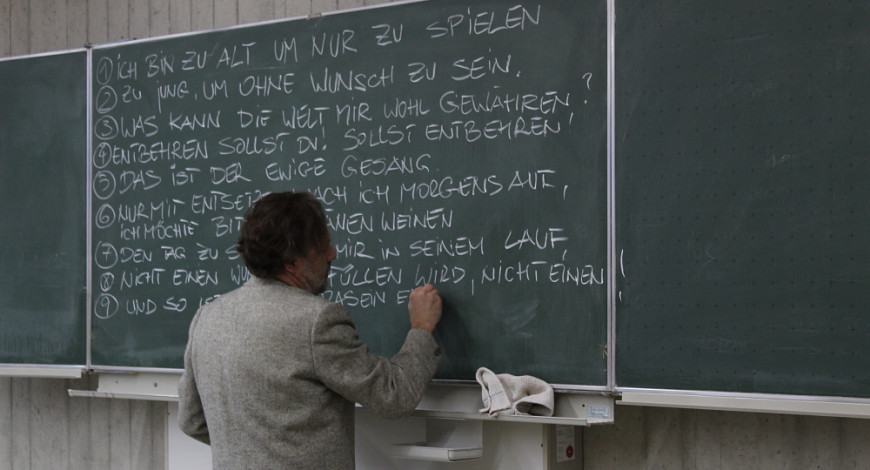 ① ICH BIN ZU ALT UM NUR ZU SPIELEN
② ZU JUNG, UM OHNE WUNSCH ZU SEIN.
③ WAS KANN DIE WELT MIR WOHL GEWÄHREN?
④ ENTBEHREN SOLLST DU! SOLLST ENTBEHREN!
⑤ DAS IST DER EWIGE GESANG.
⑥ NUR MIT ENTSETZE ACH ICH MORGENS AUF,
ICH MÖCHTE BIT NEN WEINEN
⑦ DEN TAG ZU S MIR IN SEINEM LAUF
⑧ NICHT EINEN WUN FÜLLEN WIRD, NICHT EINEN
⑨ UND SO IS DASEIN E